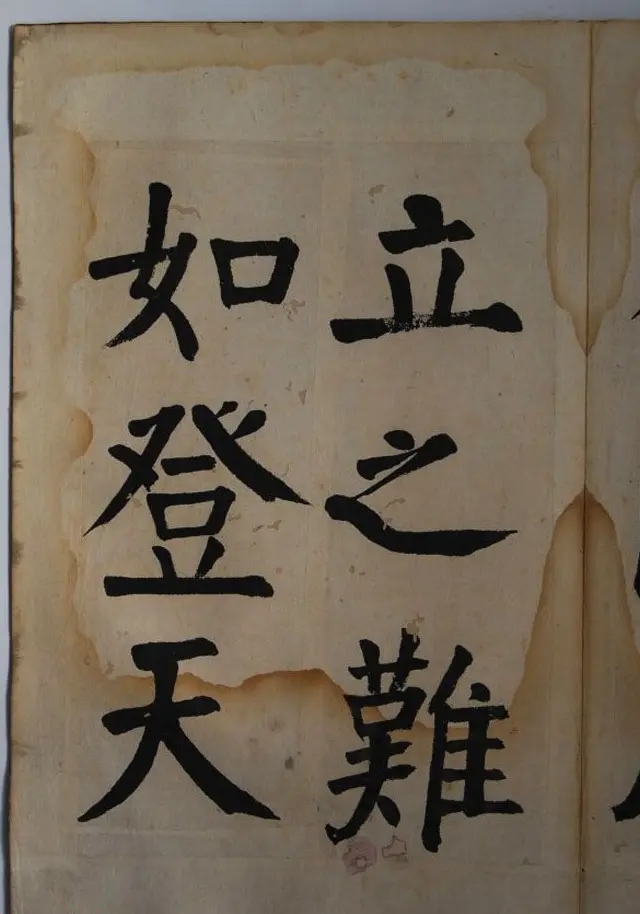 立之難
如登天